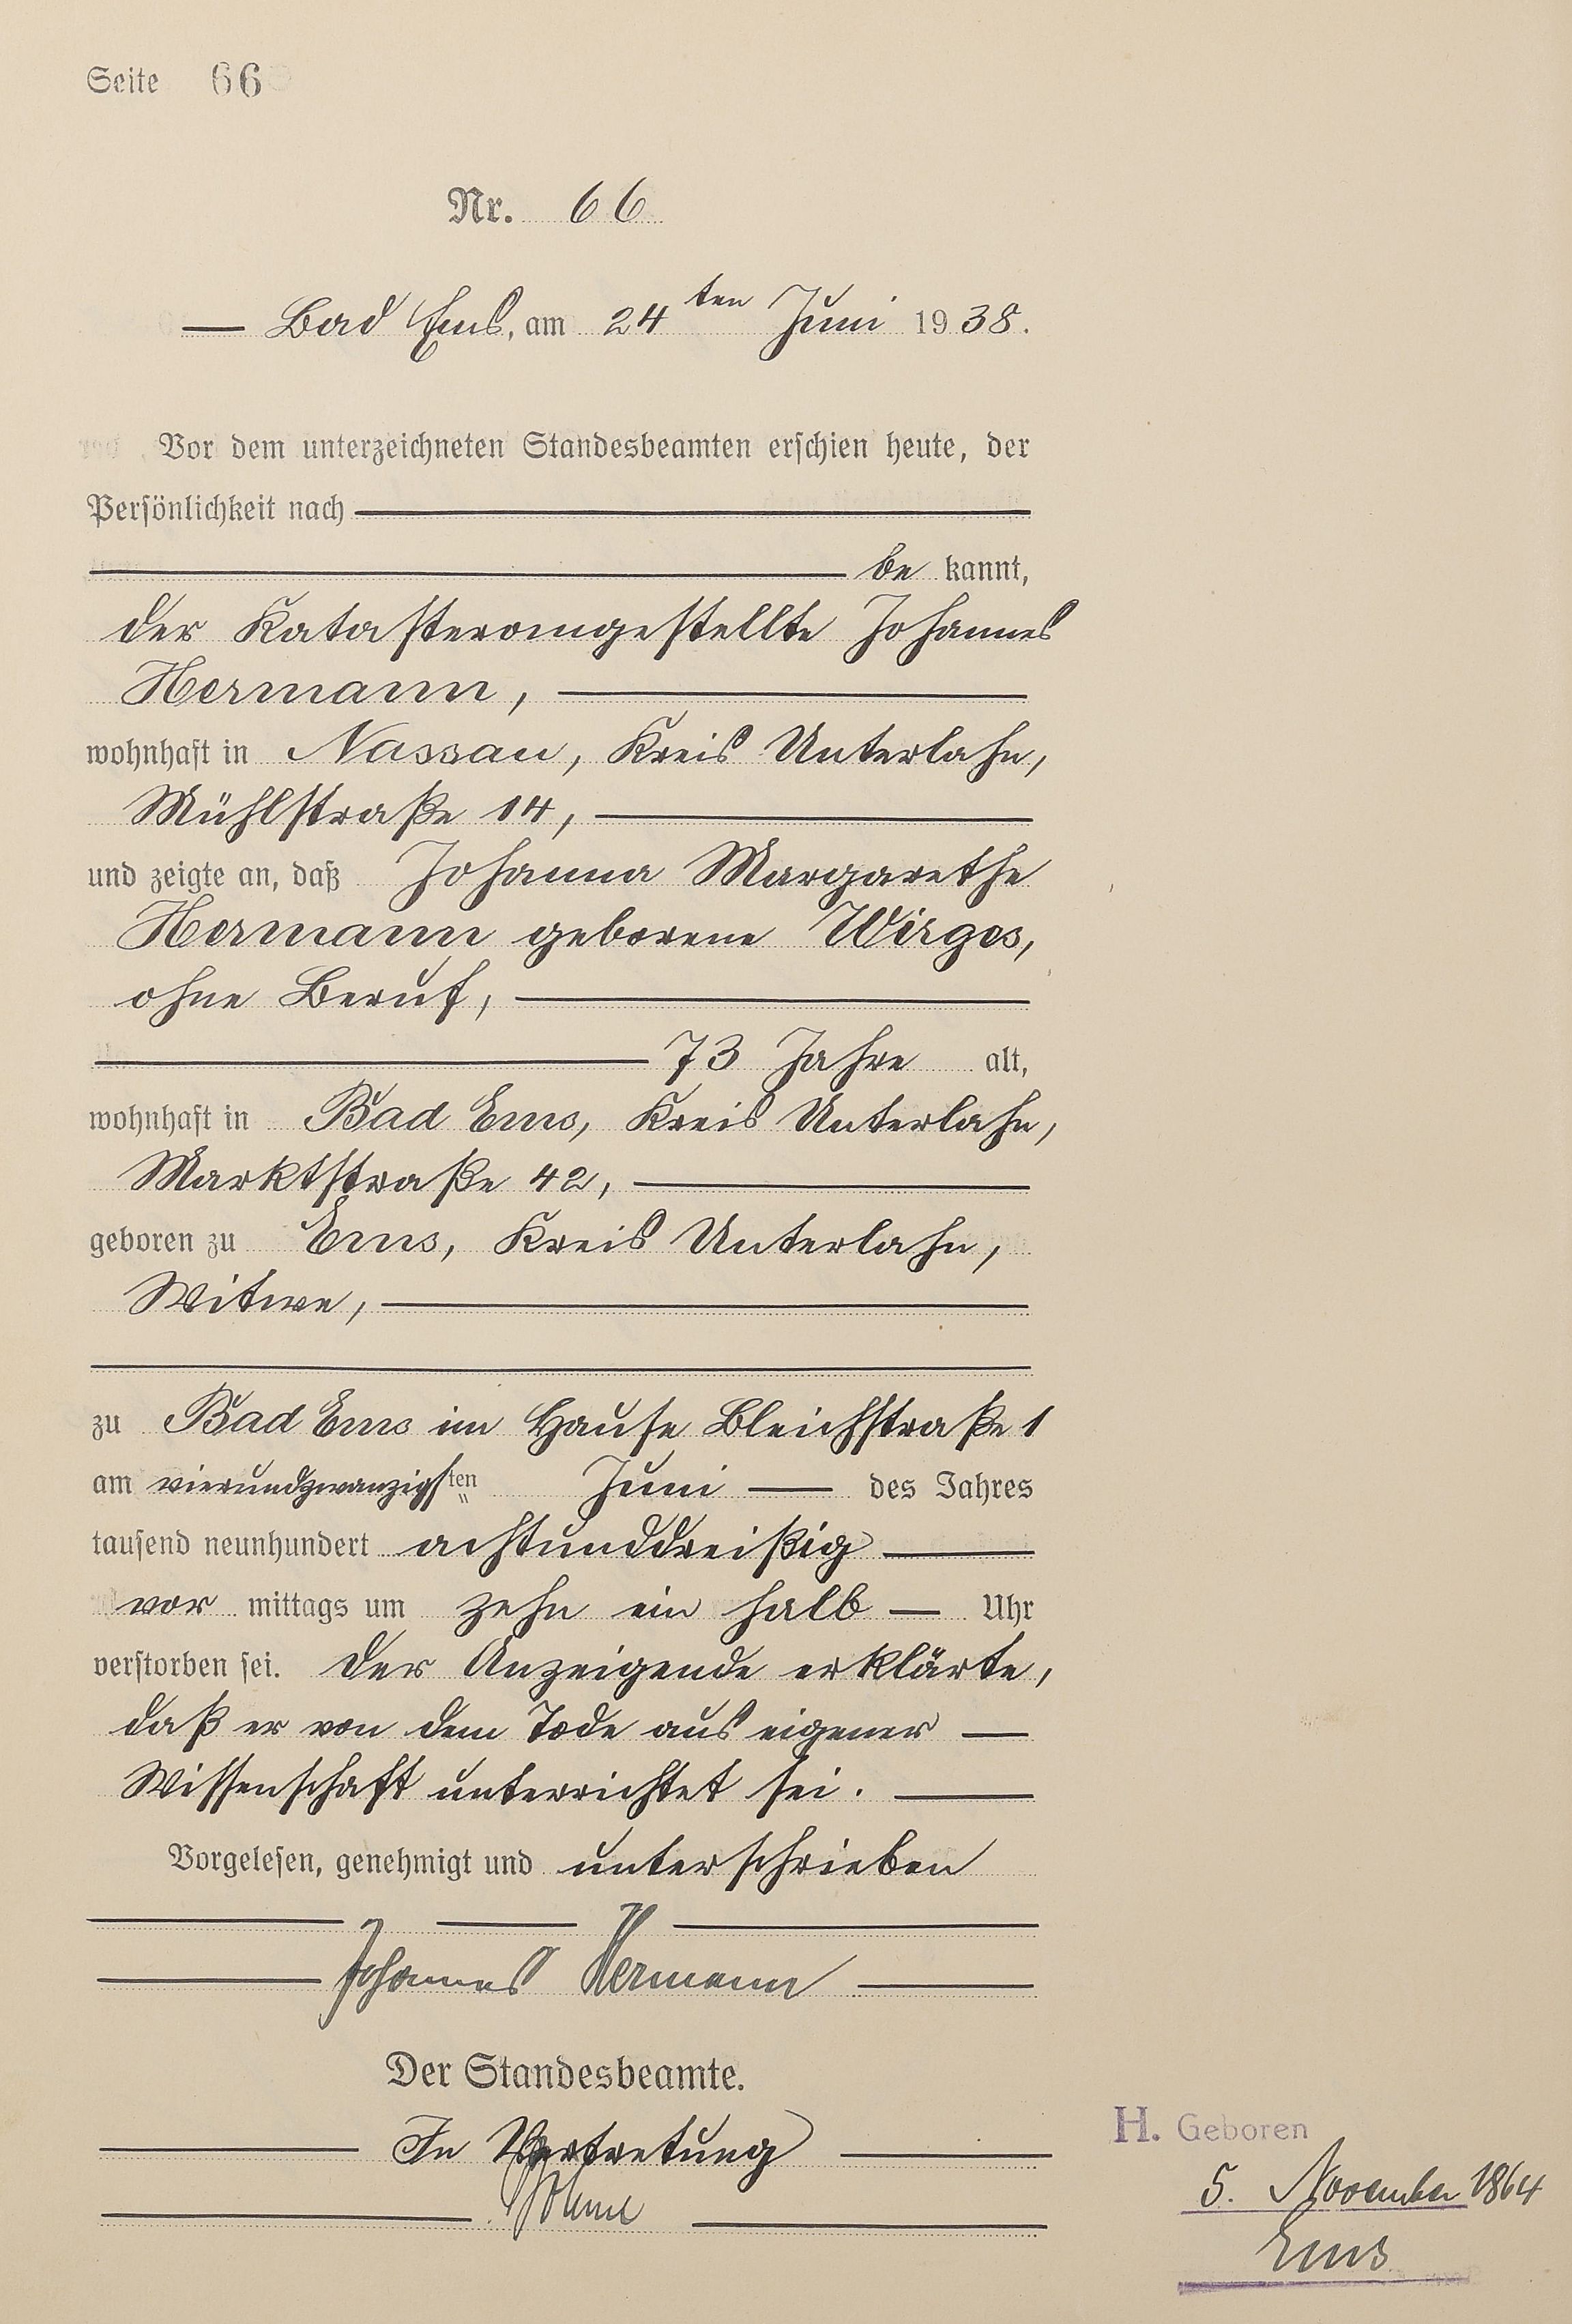 Seite 66
Nr. 66
Bad Ems, am 24ten Juni 1938.
Vor dem unterzeichneten Standesbeamten erschien heute, der
Persönlichkeit nach
be kannt,
der Katasterangestellte Johannes
Hermann,
wohnhaft in Nassau, Kreis Unterlahn,
Mühlstraße 14,
und zeigte an, daß Johanna Margarethe
Hermann geborene Wirges,
ohne Beruf,
73 Jahre alt,
wohnhaft in Bad Ems, Kreis Unterlahn,
Marktstraße 42,
geboren zu Ems, Kreis Unterlahn,
Witwe,
zu Bad Ems im Hause Bleichstraße 1
am vierundzwanzigsten Juni des Jahres
tausend neunhundert achtunddreißig
vor mittags um zehn ein halb Uhr
verstorben sei. Der Anzeigende erklärte,
daß er von dem Tode aus eigener
Wissenschaft unterrichtet sei.
Vorgelesen, genehmigt und unterschrieben
Johannes Hermann
Der Standesbeamte.
In Vertretung
H. Geboren
5. November 1864
Ems